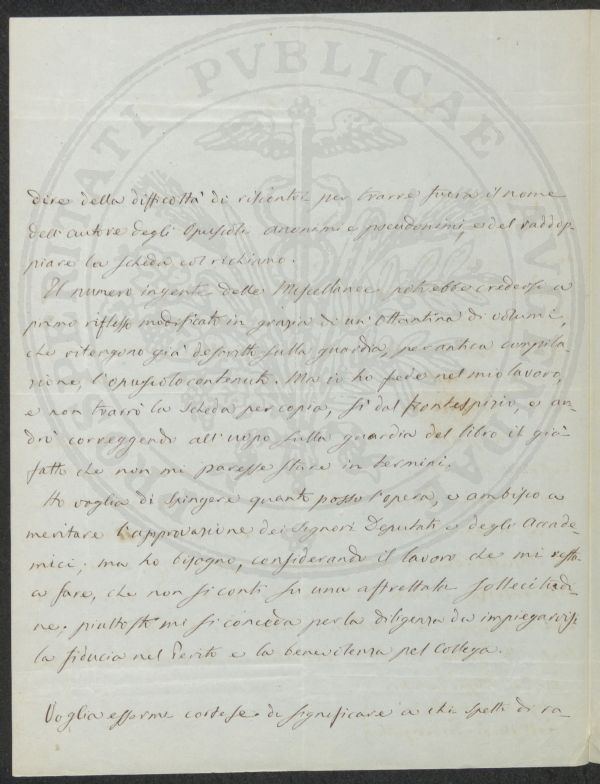 dire della difficoltà di riscontri per trarre fuora il nome
dell'autore degli Opuscoli anonimi e pseudonimi, e del raddop-
piare la scheda col richiamo.
Il numero ingente delle Miscellanee potrebbe credersi a
primo riflesso modificato in grazia di un'Ottantina di volumi,
che ritengono già descritto sulla guardia, per antica compila-
zione, l'opuscolo contenuto. Ma io ho fede nel mio lavoro,
e non trarrò la scheda per copia, sì dal frontespizio, e an-
drò correggendo all'uopo sulla guardia del libro il già
fatto che non mi paresse stare in termini.
Ho voglia di spingere quanto posso l'opera, e ambisco a
meritare l'approvazione dei Signori Deputati e degli Accade-
mici; ma ho bisogno, considerando il lavoro che mi resta
a fare, che non si conti su una affrettata sollecitudi-
ne; piuttosto mi si conceda per la diligenza da impiegarvisi
la fiducia nel Perito e la benevolenza pel Collega.
Voglia essermi cortese di significare a chi spetti di ra-
PROSPERITATI PVBLICAE